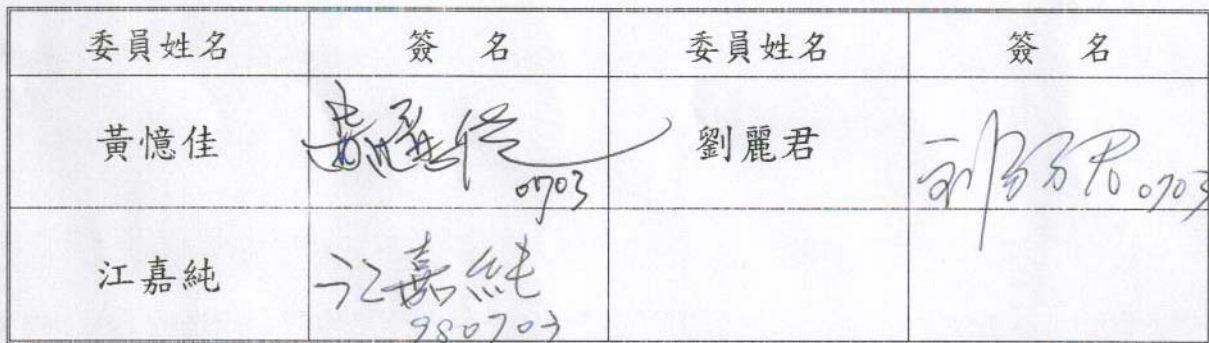 委員姓名 簽 名 委員姓名 簽 名
黃憶佳 黃憶佳 0703 劉麗君 劉麗君 0703
江嘉純 江嘉純 980703